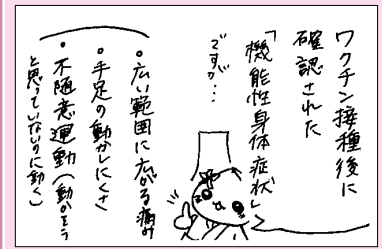 ワクチン接種後に
確認された
「機能性身体症状」
ですが…
・広い範囲に広がる痛み
・手足の動かしにくさ
・不随意運動（動かそう
と思っていないのに動く）